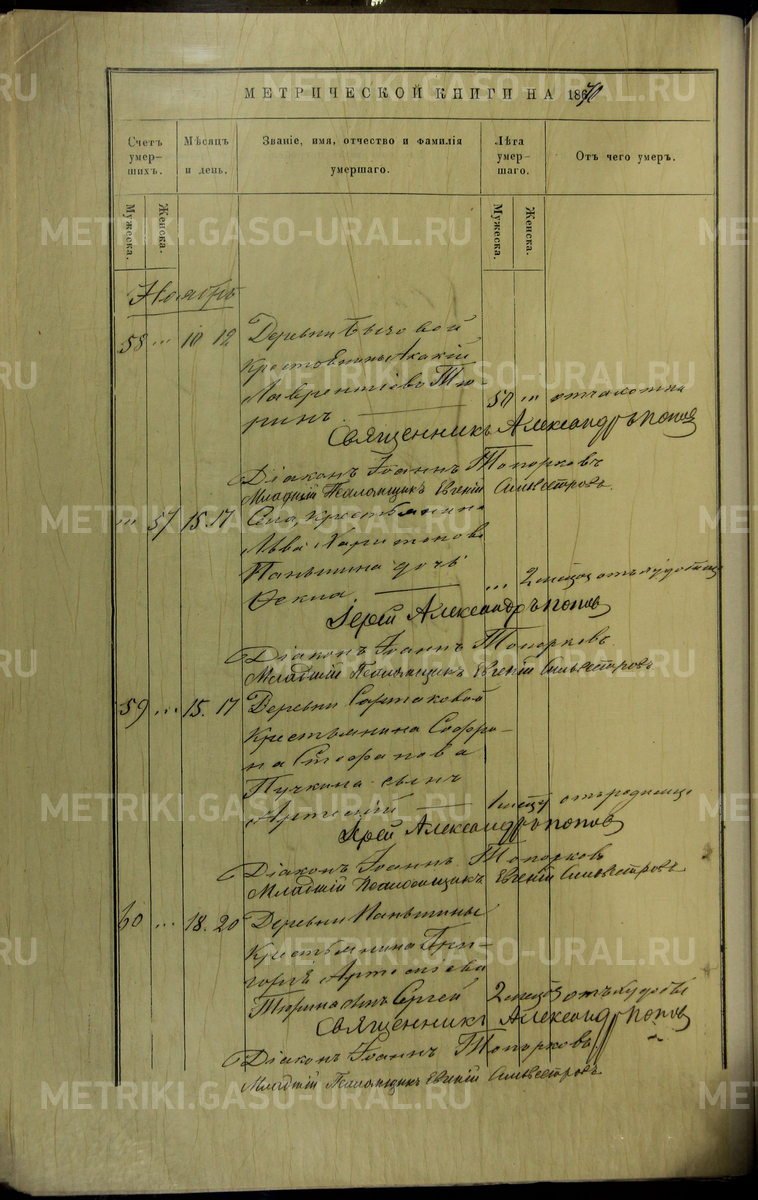 МЕТРИЧЕСКОЙ КНИГИ НА 1870
Счетъ умер-шихъ.
Мѣсяцъ и день.
Званіе, имя, отчество и фамилія умершаго.
Лѣта умер-шаго.
Отъ чего умеръ.
Мужеска.
Женска.
Мужеска.
Женска.
Ноябрь
58 ... 10 12 Деревни
Акакій
Лаврентіевъ Тю-
ринъ. 50 ...
Священникъ Александръ Попов
Діаконъ Іоаннъ Топорковъ
Младшій Псаломщикъ Евгеній Сильвестровъ.
... 57 15. 17 Села, крестьянина
Льва Харитонова
Паньшина дочь
... 2 месяц
Іерей Александръ Попов
Діаконъ Іоаннъ Топорковъ
Младшій Псаломщикъ Евгеній Сильвестровъ
59 ... 15. 17 Деревни Сартаковой
Крестьянина Софро-
на Стефанова
Пучкина сынъ
Артемій 1 месяц от родимца
Іерей Александръ Попов
Діаконъ Іоаннъ Топорковъ
Младшій Псаломщикъ Евгеній Сильвестровъ
60 ... 18. 20 Деревни Паньшины
Крестьянина Гри-
горія Артеміева
Тюрина сынъ Сергей 2 месяц отъ худобы
Священникъ Александр Попов
Діаконъ Іоаннъ Топорковъ
Младшій Псаломщикъ Евгеній Сильвестровъ
METRIKI.GASO-URAL.RU